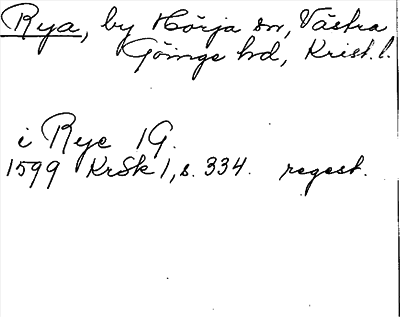 Rya, by Hörja sn, Västra
Göinge hd, Krist. l.
i Rye 1G.
1599 KrSk 1, s. 334. regest.